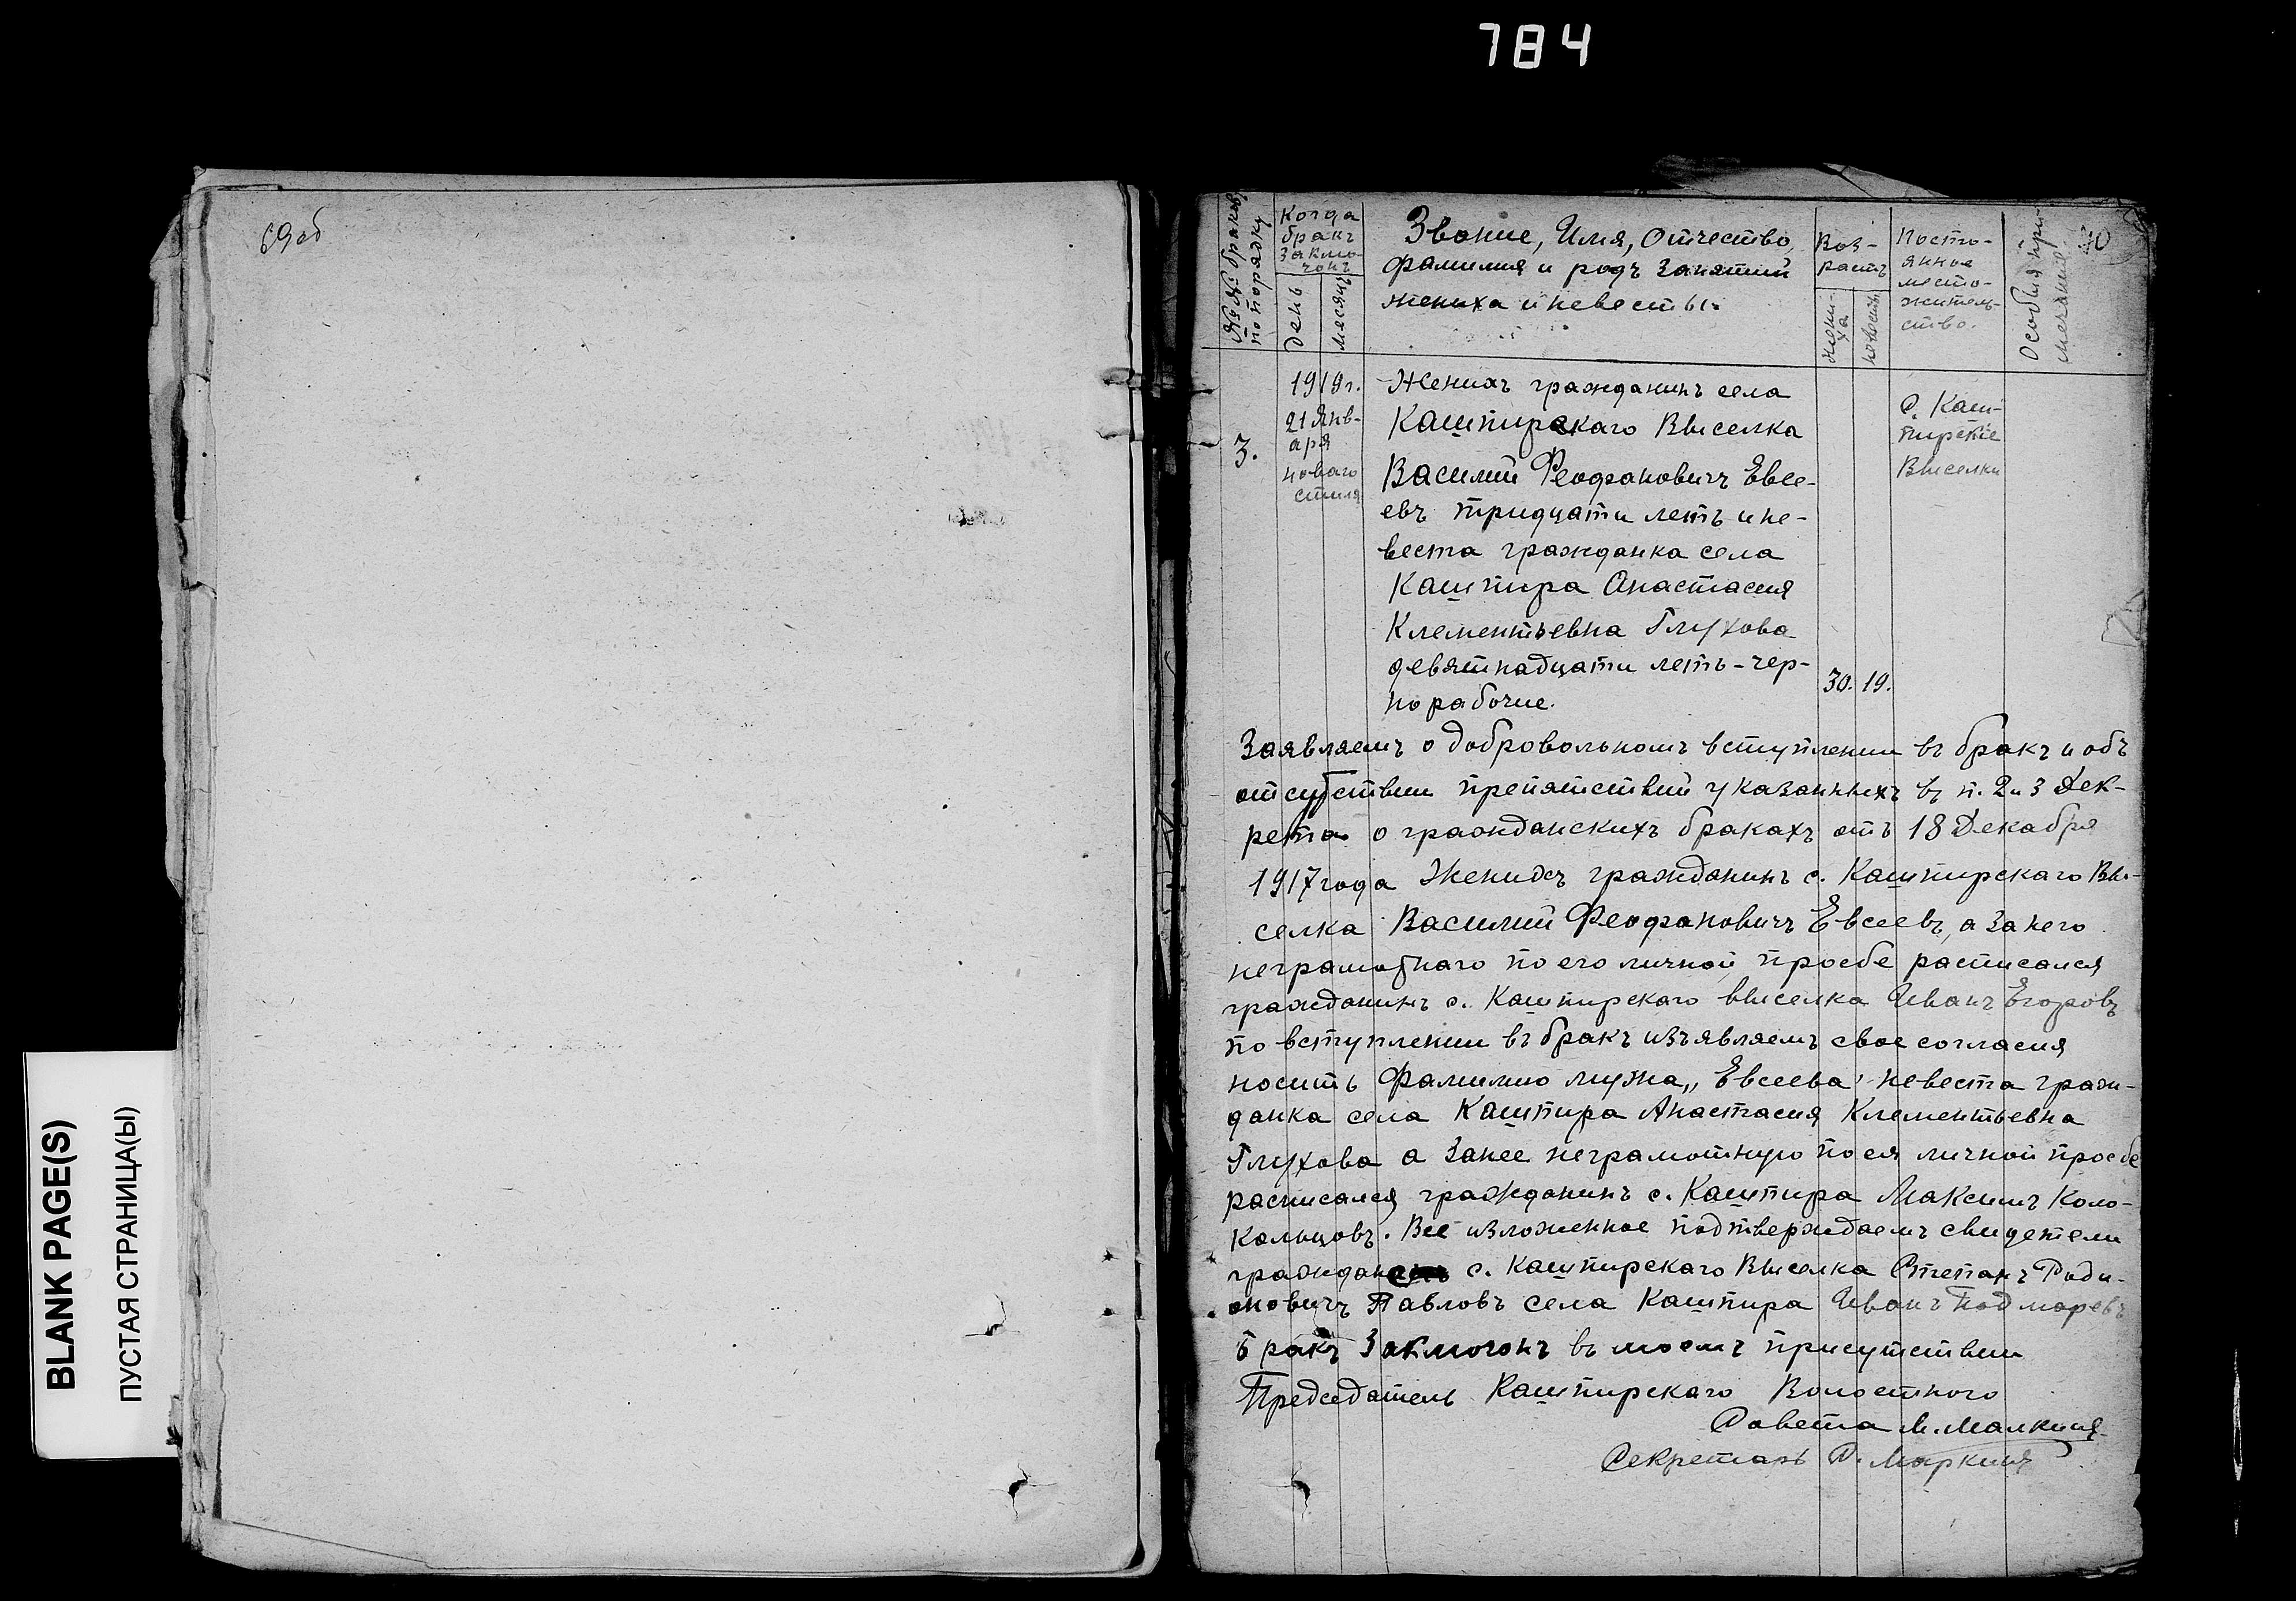 784
69об
BLANK PAGE(S)
ПУСТАЯ СТРАНИЦА(Ы)
40
№№ браковъ
по порядку
Когда
бракъ
заклю-
чонъ
день
месяцъ
Звание, Имя, Отчество,
фамилия и родъ занятий
жениха и невесты.
Воз-
растъ
жени-
ха
невесты
Посто-
янное
место-
житель-
ство.
Особыя при-
мечания.
3.
1919г.
21 Янв-
аря
новаго
стиля
Женихъ гражданинъ села
Кашпирскаго Выселка
Василий Феофановичъ Евсе-
евъ тридцати летъ и не-
веста гражданка села
Кашпира Анастасия
Клементьевна Глухова
девятнадцати летъ - чер-
норабочие.
30. 19.
С. Каш-
пирские
Выселки
Заявляемъ о добровольномъ вступлении въ бракъ и объ
отсутствии препятствий указанныхъ въ п. 2 и 3 Дек-
рета о гражданскихъ бракахъ отъ 18 Декабря
1917 года Женихъ гражданинъ с. Кашпирскаго Вы-
селка Василий Феофановичъ Евсеевъ, а за него
неграмотнаго по его личной просбе расписался
гражданинъ с. Кашпирскаго выселка Иванъ Егоровъ
по вступлении въ бракъ изъявляемъ свое согласия
носить Фамилию мужа „Евсеева" невеста граж-
данка села Кашпира Анастасия Клементьевна
Глухова а за нее неграмотную по ея личной просбе
расписался гражданинъ с. Кашпира Максимъ Коло-
кольцовъ. Все изложенное подтверждаемъ свидетели
граждан с. Кашпирскаго Выселка Степанъ Роди-
оновичъ Павловъ села Кашпира Иванъ Подморевъ
Бракъ Заключонъ въ моемъ присутствии
Председатель Кашпирскаго Волостного
Совета М. Малкин
Секретарь С. Маркин